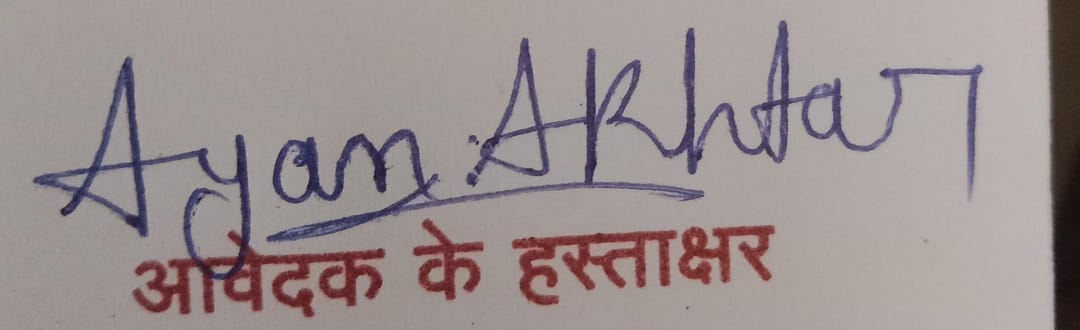 Ayan Akhtar
आवेदक के हस्ताक्षर